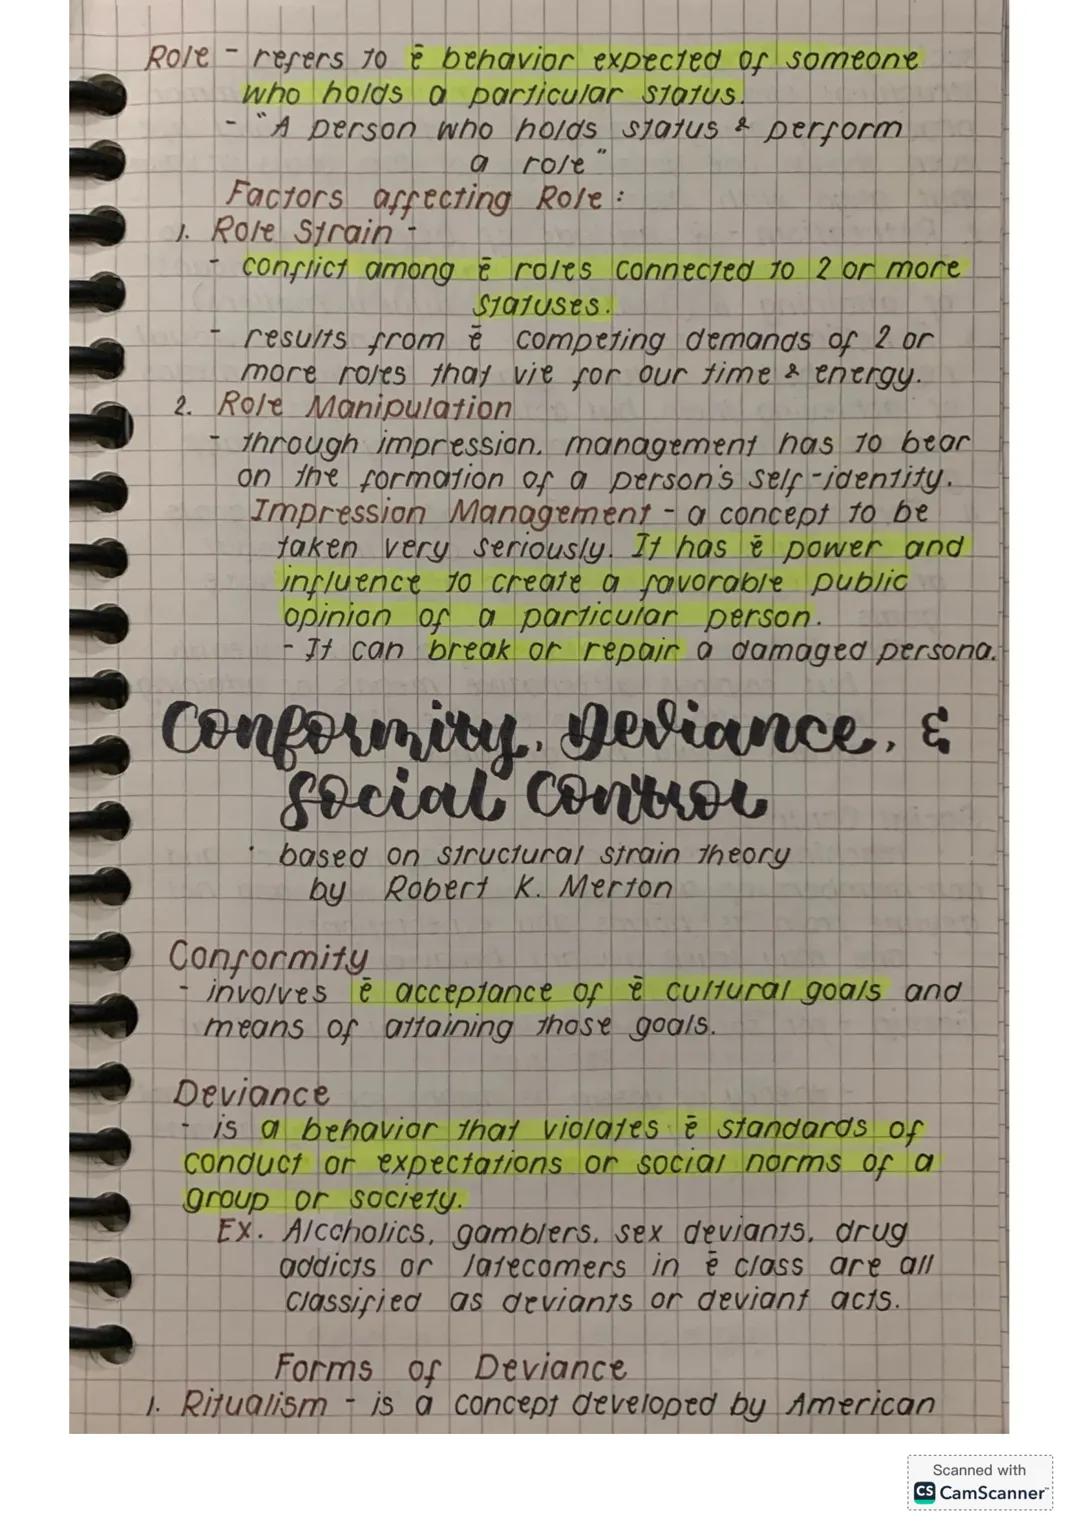 Role - refers to ē behavior expected of someone
who holds a particular status.
- "A person who holds status & perform
a role"
Factors affecting Role:
1. Role Strain -
- conflict among ē roles connected to 2 or more
statuses.
- results from ē competing demands of 2 or
more roles that vie for our time & energy.
2. Role Manipulation
- through impression. management has to bear
on the formation of a person's self-identity.
Impression Management - a concept to be
taken very seriously. It has ē power and
influence to create a favorable public
opinion of a particular person.
- It can break or repair a damaged persona.
Conformity, Deviance, &
Social Control
• based on structural strain theory
by Robert K. Merton
Conformity
- involves ē acceptance of ē cultural goals and
means of attaining those goals.
Deviance
- is a behavior that violates ē standards of
conduct or expectations or social norms of a
group or society.
Ex. Alcoholics, gamblers, sex deviants, drug
addicts or latecomers in ē class are all
classified as deviants or deviant acts.
Forms of Deviance
1. Ritualism - is a concept developed by American
Scanned with
CS CamScanner